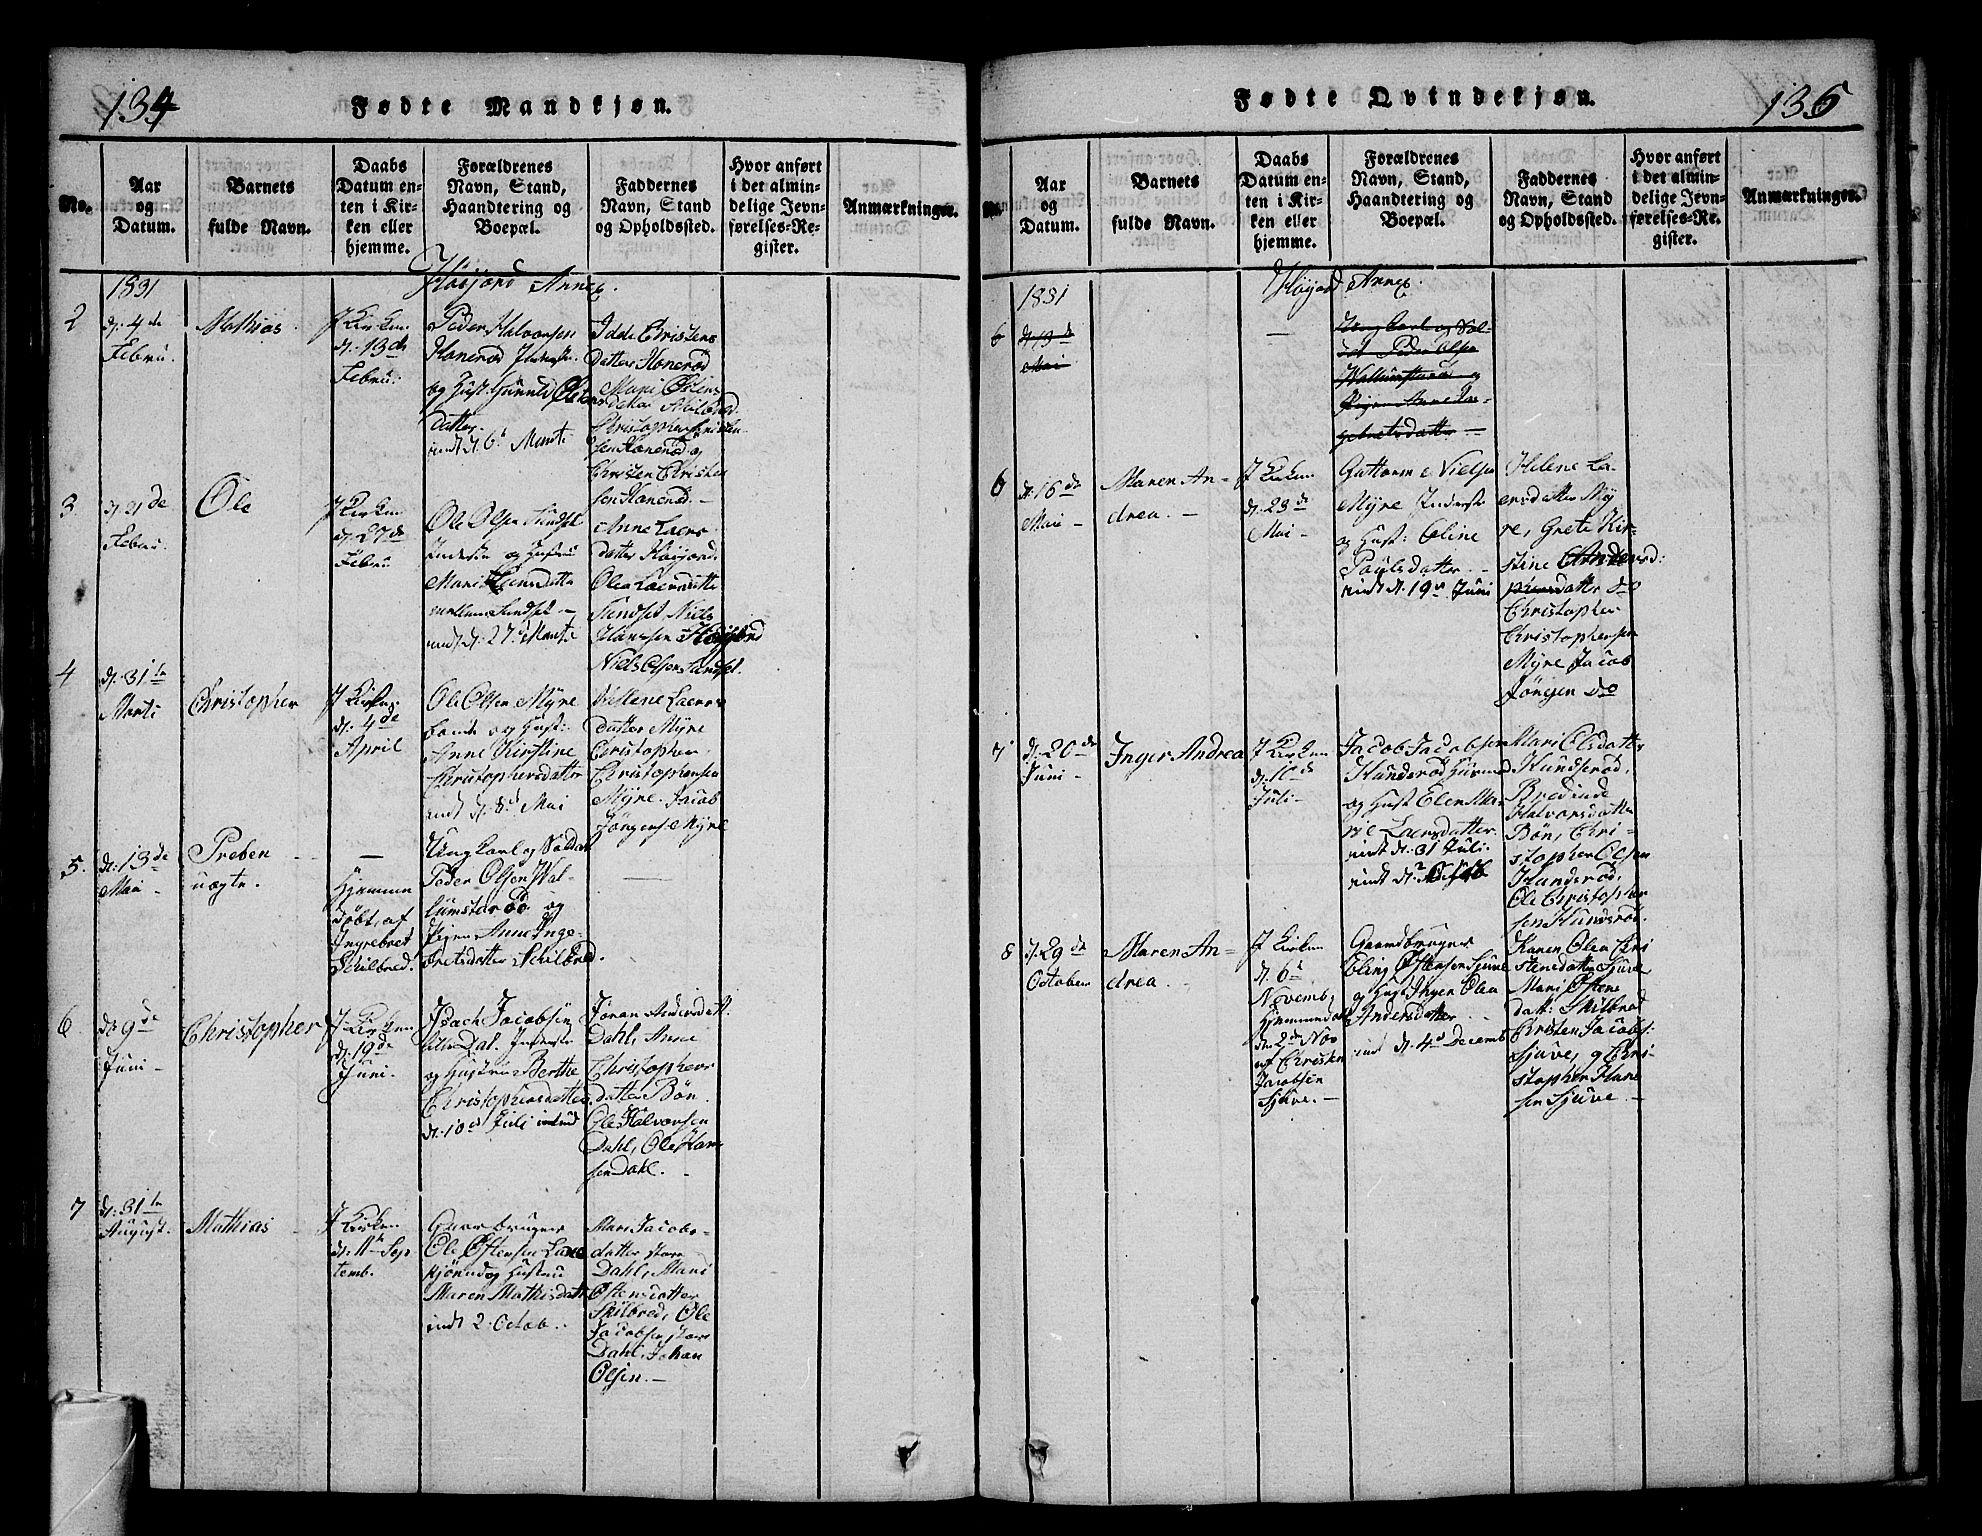 134
Fødte Mandkjøn.
No.
Aar
og
Datum.
Barnets
fulde Navn.
Daabs
Datum en-
ten i Kir-
ken eller
hjemme.
Forældrenes
Navn, Stand,
Haandtering og
Boepæl.
Faddernes
Navn, Stand
og Opholdssted.
Hvor anført
i det almin-
delige Jevn-
førelses-Re-
gister.
Anmærkninger.
Høijord Annex.
1831
2
d: 4de
Febru.
Mathias
I Kirken
d. 13de
Febru:
Peder Halvorsen
Honerød Inderst
og Hust: Gunild Olens
datter.
indt d. 6d Marti
Christens
datter Honerød
Mari Ostens
datter Skilbred
Christopher Christen
sen Honerød og
Christen Christen
sen Honerød. —
3
Febru.
Ole
I Kirken
d. 27de
Febru
Ole Olsen Sundset
Inderst og Hustru
Mari Laersdatter
mellem Sundset —
indt d. 27d Marti
Anne Laers
datter Høijord
Olea Laersdatter
Sundset Niels
Hanssen Høijord
Niels Olsen Sundset.
4
d. 31te
Marti
Christopher
I Kirken
d. 4de
April
Ole Olsen Myre
bonde og Hust:
Anne Kirstine
Christophersdatter
indt d. 8d Mai
Helene Laers
datter Myre
Christopher
Christophersen
Myre. Jacob
Jörgens. Myre
5.
d: 13de
Mai —
Preben
uægte.
—
Hjemmen
döbt, af
Ingrebret
Schilbred.
Ungkarl og Soldat
Peder Olsen Wal-
lumstarød og
Pigen Anne Inge-
bretsdatter Schilbred.
—
6
d. 9de
Juni —
Christopher
I Kirken
d. 19de
Juni.
Isach Jacobsen
lille Dal. Inderste
og Hustru Berthe
Christophersdatter
d. 10d Juli introd
Jöran Andersdatt.
Dahl, Anne
Christophers
datter Bön.
Ole Halvorsen
Dahl, Ole Han
sen Dahl. —
7
d: 31te
August.
Mathias
I Kirken
d. 11te Sep
temb.
Gaardbruger
Ole Ostensen
og Hustru
Maren Mathisdatt
indt 2. Octob.
Mari Jacobs-
datter store
Dahl, Mari
Ostensdatter
Skilbred, Ole
Jacobsen store
Dahl, Johan
Olsen. —
Fødte Qvindekjøn.
135
No.
Aar
og
Datum.
Barnets
fulde Navn.
Daabs
Datum en-
ten i Kir-
ken eller
hjemme.
Forældrenes
Navn, Stand,
Haandtering og
Boepæl.
Faddernes
Navn, Stand
og Opholdssted.
Hvor anført
i det almin-
delige Jevn-
førelses-Re-
gister.
Anmærkninger.
Høijord Annex.
1831
6
d. 13de
Mai
—
Ungkarl og Sol-
dat Peder Olsen
Wallumstarød og
Pigen Anne In-
gebretsdatter —
6
d: 16de
Mai —
Maren An-
drea. —
I Kirken
d. 23de
Mai —
Guttorm Nielsen
Myre Inderst
og Hust: Oline
Paulsdatter. —
indt d. 19d Juni
Helene La-
ersdatter My
re, Grete Kir-
stine Anders
datter do
Christopher
Christophersen
Myre Jacob
Jörgen do
7
d: 20de
Juni —
Inger Andrea
I Kirken
d. 10de
Juli —
Jacob Jacobsen
Hundsrød Huusmd
og Hust Elen Ma-
rie Laersdatter.
indt d. 31 Juli.
Mari Olsdatter
Hundsrød,
Halvorsdatter
Bön, Chri-
stopher Olsen
Hundsrød,
Ole Christopher
sen Hundsrød.
8
d. 29de
October
Maren An-
drea —
I Kirken
d. 6d
Novemb;
Hjemmendöbt
d. 2de Nov
af Christen
Jacobsen
Sjuve. —
Gaardbruger
Eling Ostensen Sjuve
og Hust Inger Olea
Andersdatter —
indt d. 4d Decemb
Karen Olea Chri
stensdatter Sjuve
Mari Ostens
datt: Skilbred
Christen Jacobs:
Sjuve, og Chri-
stopher Hans
sen Sjuve. —